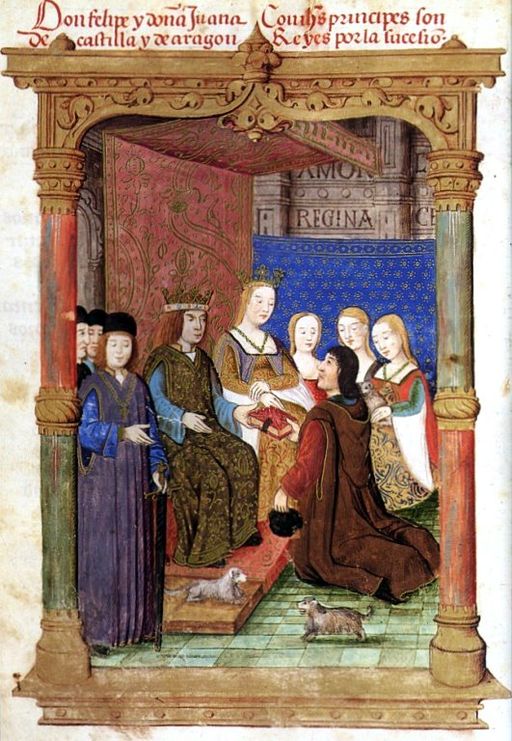 Don felipe y doña Juana
de castilla y de aragon
Co
principes son
Reyes por la sucesiō.
AMOR
REGINA